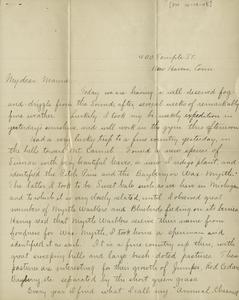 400 Temple St.
New Haven, Conn.
My dear Mama:
Today we are having a well deserved fog
and drizzle from the Sound, after several weeks of remarkably
fine weather. Luckily I took my weekly expedition in
yesterday's sunshine, and will work in the gym this afternoon.
Had a very lucky trip to a fine country yesterday, in
the hills toward Mt. Carmel. Found a new species of
Sumac with very beautiful leaves, a new Indigo plant, and
identified the Pitch Pine and the Bayberry or Wax Myrtle.
The latter I took to be Sweet Gale such as we have in Michigan
and to which it is very closely related, until I observed great
numbers of Myrtle Warblers and Bluebirds feeding on its berries.
Having read that Myrtle Warblers receive their name from
fondness for Wax Myrtle, I took home a specimen and
identified it as such. It is a fine country up there, with
great sweeping hills and large brush dotted pastures. These
pastures are interesting for their growth of Junifer, Red Cedar,
Bayberry, etc. separated by the short green grass.
Every year I find what I call my "Annual